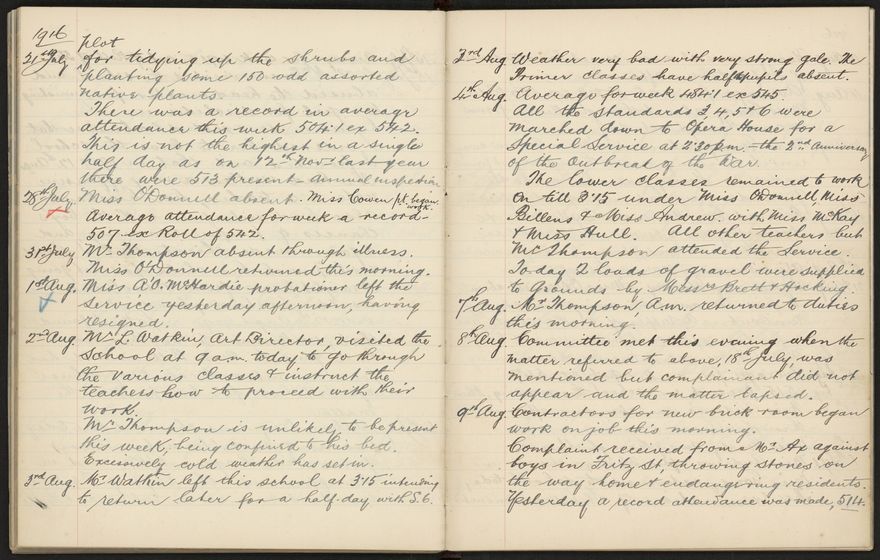 1916
plot
21st July for tidying up the shrubs and
planting some 150 odd assorted
native plants.
There was a record in average
attendance this week 504.1 ex 542.
This is not the highest in a single
half day as on 12th Novr last year
there were 513 present - annual inspection
28th July Miss O'Donnell absent. Miss Cowen pt. began work.
Average attendance for week a record -
507 ex Roll of 542.
31st July Mr Thompson absent through illness.
Miss O'Donnell returned this morning.
1st Aug. Miss A.O. McHardie probationer left the
service yesterday afternoon, having
resigned.
2nd Aug. Mr L. Watkin, Art Director, visited the
School at 9 a.m. today to go through
the various classes & instruct the
teachers how to proceed with their
work.
Mr Thompson is unlikely to be present
this week, being confined to his bed.
Excessively cold weather has set in.
3rd Aug. Mr Watkin left this school at 3.15 intending
to return later for a half-day with S.6.
3rd Aug Weather very bad with very strong gale. The
Primer classes have half pupils absent.
4th Aug. Average for week 484.1 ex 545
All the Standards 3, 4, 5 & 6 were
marched down to Opera House for a
Special Service at 2.30 p.m. - the 2nd anniversary
of the Outbreak of the War.
The lower classes remained to work
on till 3.15 under Miss O'Donnell, Miss
Billens & Miss Andrew. with Miss McKay
& Miss Hull. All other teachers but
Mr Thompson attended the Service.
To-day 2 loads of gravel were supplied
to grounds by Messrs Brett & Hocking.
7th Aug. Mr Thompson, A.M. returned to duties
this morning.
8th Aug. Committee met this evening when the
matter referred to above, 18th July, was
mentioned but complainant did not
appear and the matter lapsed.
9th Aug. Contractors for new brick room began
work on job this morning.
Complaint received from a Mr. Ax against
boys in Fritz St. throwing stones on
the way home & endangering residents.
Yesterday a record attendance was made, 514.